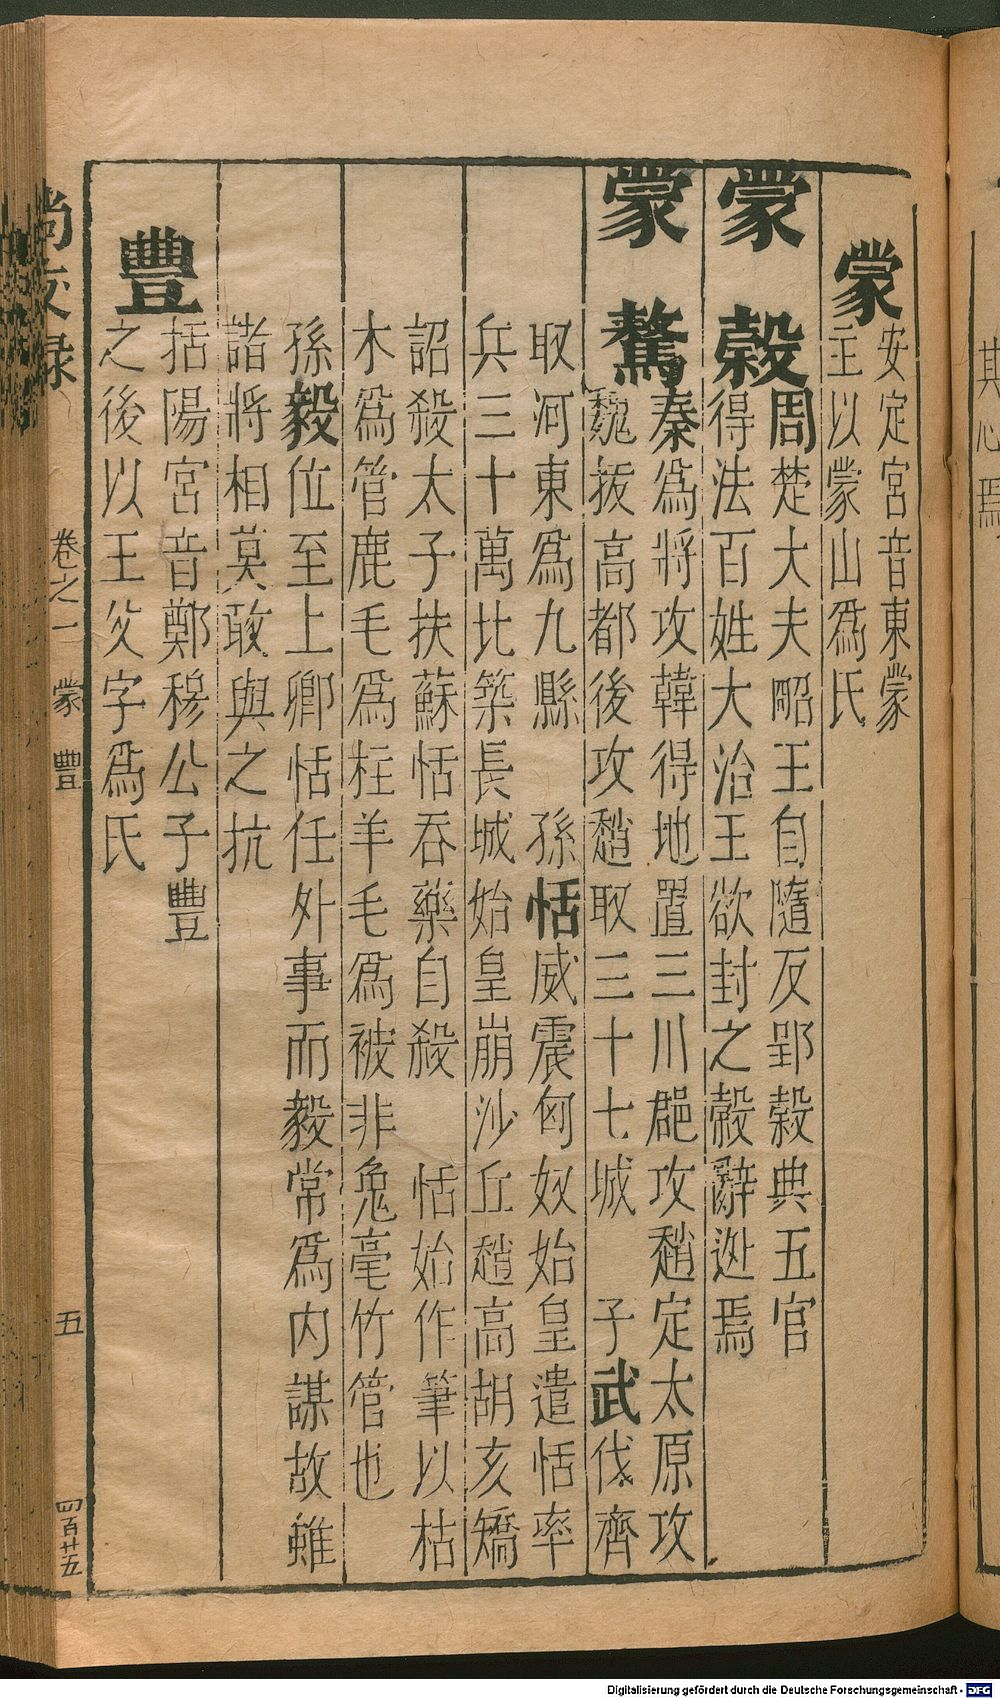 其心焉
蒙安定宮音東蒙
主以蒙山爲氏
蒙穀周楚大夫昭王自隨反郢穀典五官
得法百姓大治王欲封之穀辭逃焉
蒙驁秦爲將攻韓得地置三川郡攻趙定太原攻
魏拔高都後攻趙取三十七城　子武伐齊
取河東爲九縣　孫恬威震匈奴始皇遣恬率
兵三十萬北築長城始皇崩沙丘趙高胡亥矯
詔殺太子扶蘇恬吞藥自殺　恬始作筆以枯
木爲管鹿毛爲柱羊毛爲被非兔毫竹管也
孫毅位至上卿恬任外事而毅常爲內謀故雖
諸將相莫敢與之抗
豐括陽宮音鄭穆公子豐
之後以王父字爲氏
尚友録
卷之一
蒙豐
五
四百廿五
Digitalisierung gefördert durch die Deutsche Forschungsgemeinschaft - DFG